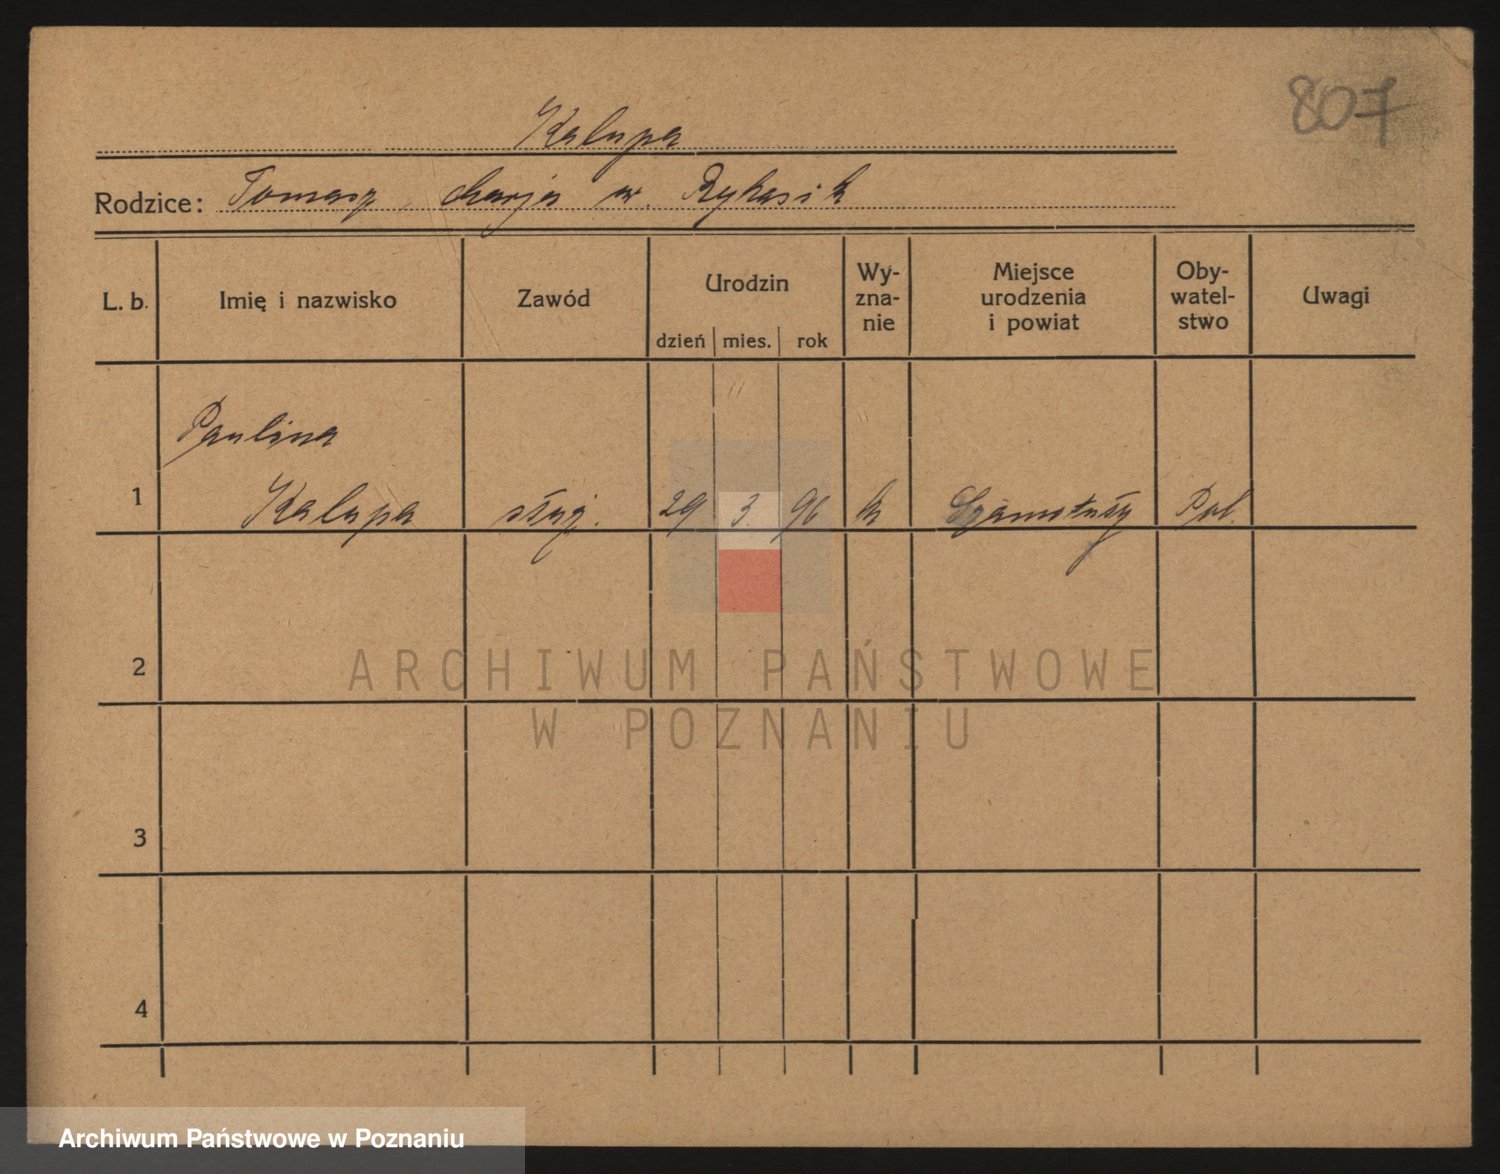 807
Kalupa
Rodzice: Tomasz, Marja w. Rykasik
L. b. Imię i nazwisko Zawód Urodzin dzień mies. rok Wy-zna-nie Miejsce urodzenia i powiat Oby-watel-stwo Uwagi
Paulina
1 Kalupa służ. 29 3. 96 k Szamotuły Pol.
2
ARCHIWUM PAŃSTWOWE
W POZNANIU
3
4
Archiwum Państwowe w Poznaniu